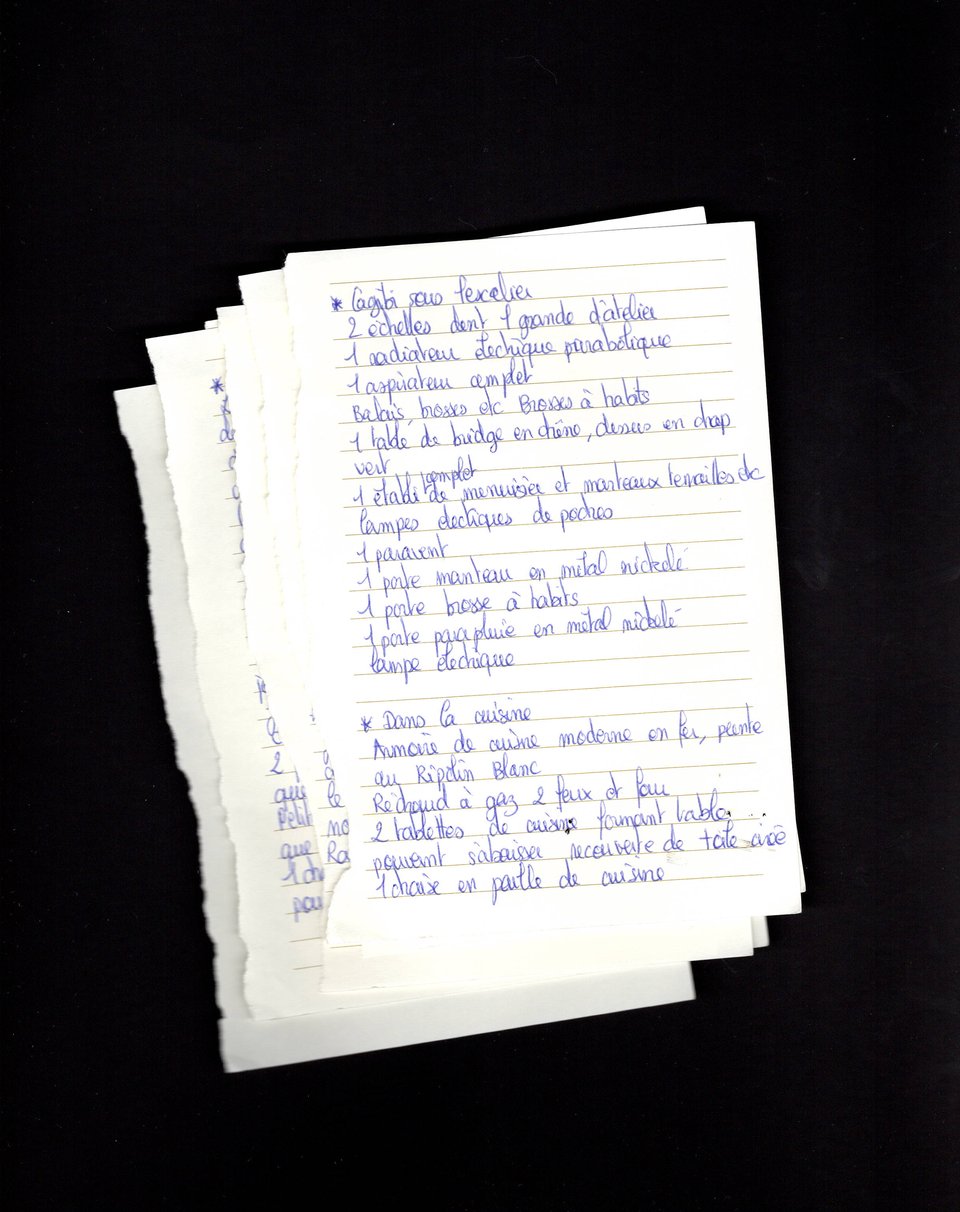 * Cagibi sous l'escalier
2 échelles dont 1 grande d'atelier
1 radiateur électrique parabolique
1 aspirateur complet
Balais, brosses etc Brosses à habits
1 table de bridge en chêne, dessus en drap
vert
complet
1 établi de menuisier et marteaux tenailles etc
lampes électriques de poches
1 paravent
1 porte manteau en métal nickelé
1 porte brosse à habits
1 porte parapluie en métal nickelé
lampe électrique
* Dans la cuisine
Armoire de cuisine moderne en fer, peinte
au Ripolin Blanc
Réchaud à gaz 2 feux et four
2 tablettes de cuisine formant table,
pouvant s'abaisser recouverte de toile cirée
1 chaise en paille de cuisine
*
2
2
que
Petit
que
1 ch
pou
le
no
Ra